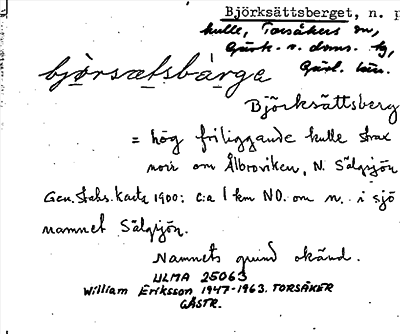 Björksättsberget, n. p
kulle, Torsåkers sn,
Gästr. v. doms. tg,
Gävl. län.
bjọ̈rsætsbärgə
Björksättsberg
= hög friliggande kulle strax
norr om Ålbroviken, N. Sälgsjön
Gen. Stabs. Karta 1900: c:a 1 km NO. om n. i sjö
namnet Sälgsjön.
Namnets grund okänd.
ULMA 25063
William Eriksson 1947-1963. TORSÅKER
GÄSTR.